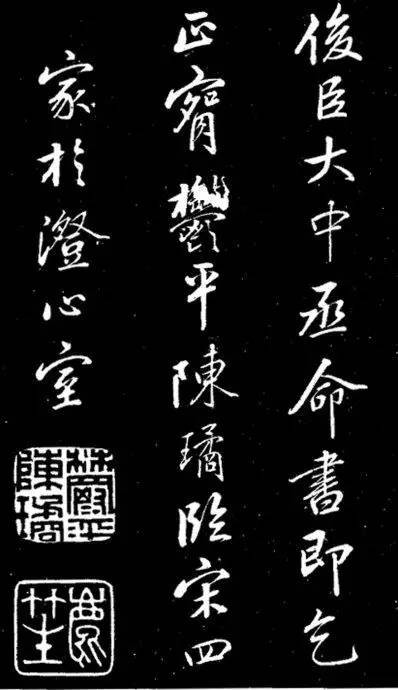 俊臣大中丞命書即乞
正甯鬱平陳璚臨宋四
家於澄心室
鬱平陳璚
鹿笙